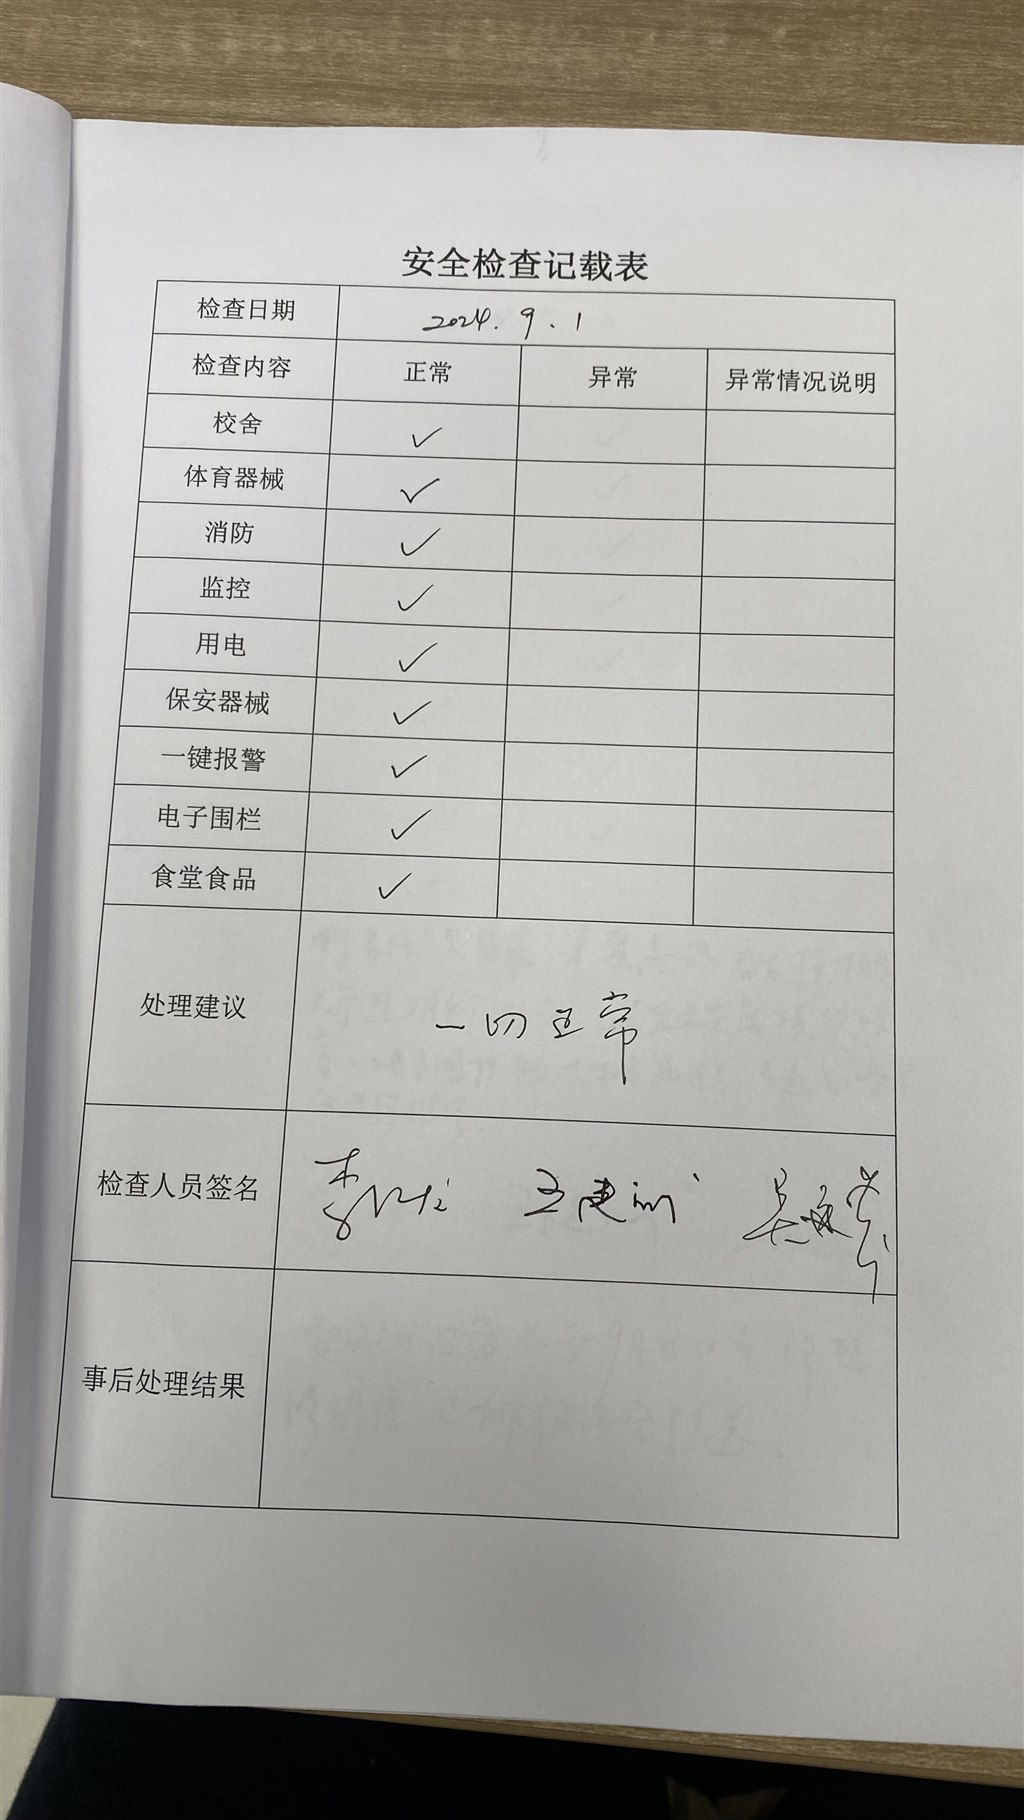 安全检查记载表
检查日期 2024.9.1
检查内容 正常 异常 异常情况说明
校舍 ✓
体育器械 ✓
消防 ✓
监控 ✓
用电 ✓
保安器械 ✓
一键报警 ✓
电子围栏 ✓
食堂食品 ✓
处理建议 一切正常
检查人员签名
事后处理结果